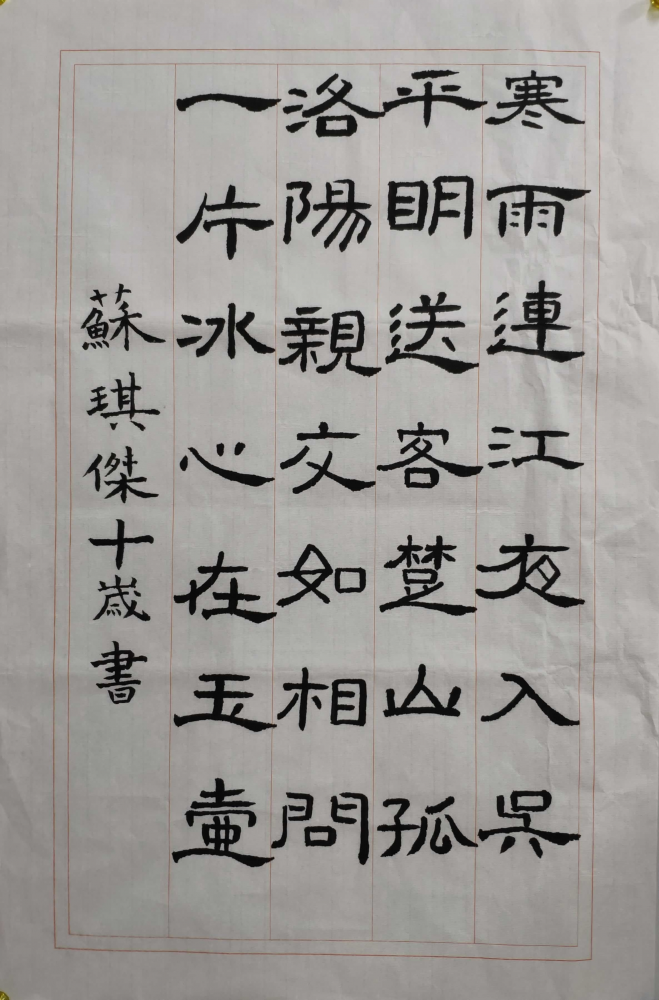 寒雨連江夜入吳
平明送客楚山孤
洛陽親交如相問
一片冰心在玉壷
蘇琪傑十歲書